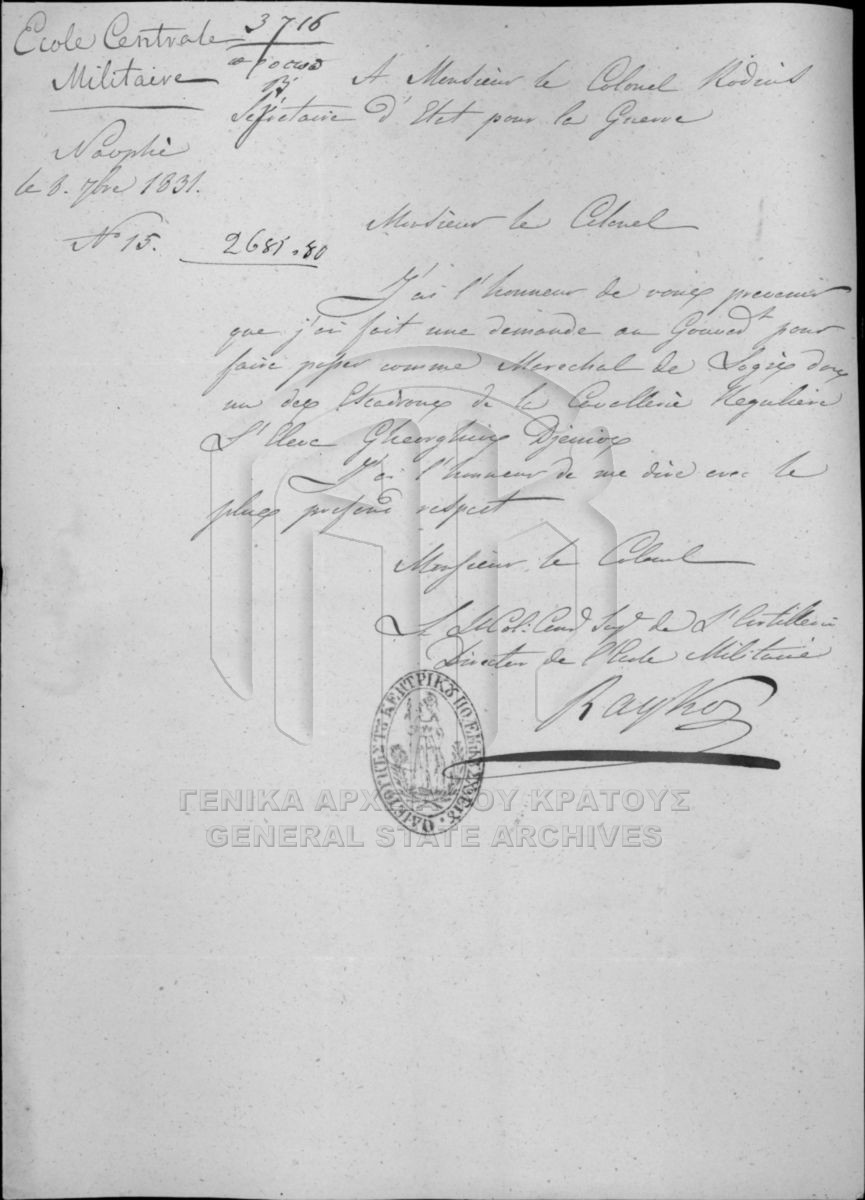 Ecole Centrale
Militaire
3716
A Monsieur le Colonel Rodius
Secrétaire d'Etat pour la Guerre
Nauplie
le 8. 7bre 1831.
Nº 15.
2681.80
Monsieur le Colonel
J'ai l'honneur de vous prevenir
que j'ai fait une demande au Gouvert pour
faire passer comme Marechal de Logis dans
un des Escadrons de la Cavallerie Reguliere
L'Eleve Gheorghios
J'ai l'honneur de me dire avec le
plus profond respect
Monsieur le Colonel
Le Lt Col. de L'Artillerie
Director de l'Ecole Militaire
Rayko
ΓΕΝΙΚΑ ΑΡΧΕΙΑ ΤΟΥ ΚΡΑΤΟΥΣ
GENERAL STATE ARCHIVES